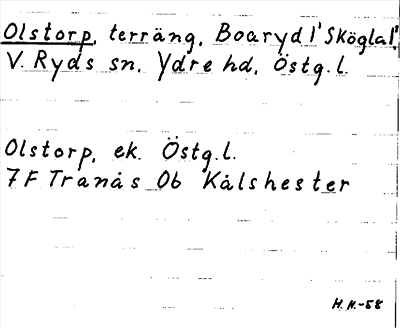 Olstorp, terräng, Boaryd l' Sköglal'.
V. Ryds sn, Ydre hd, Östg.l.
Olstorp, ek. Östg.l.
7F Tranås 0b Kålshester
H.H.-58